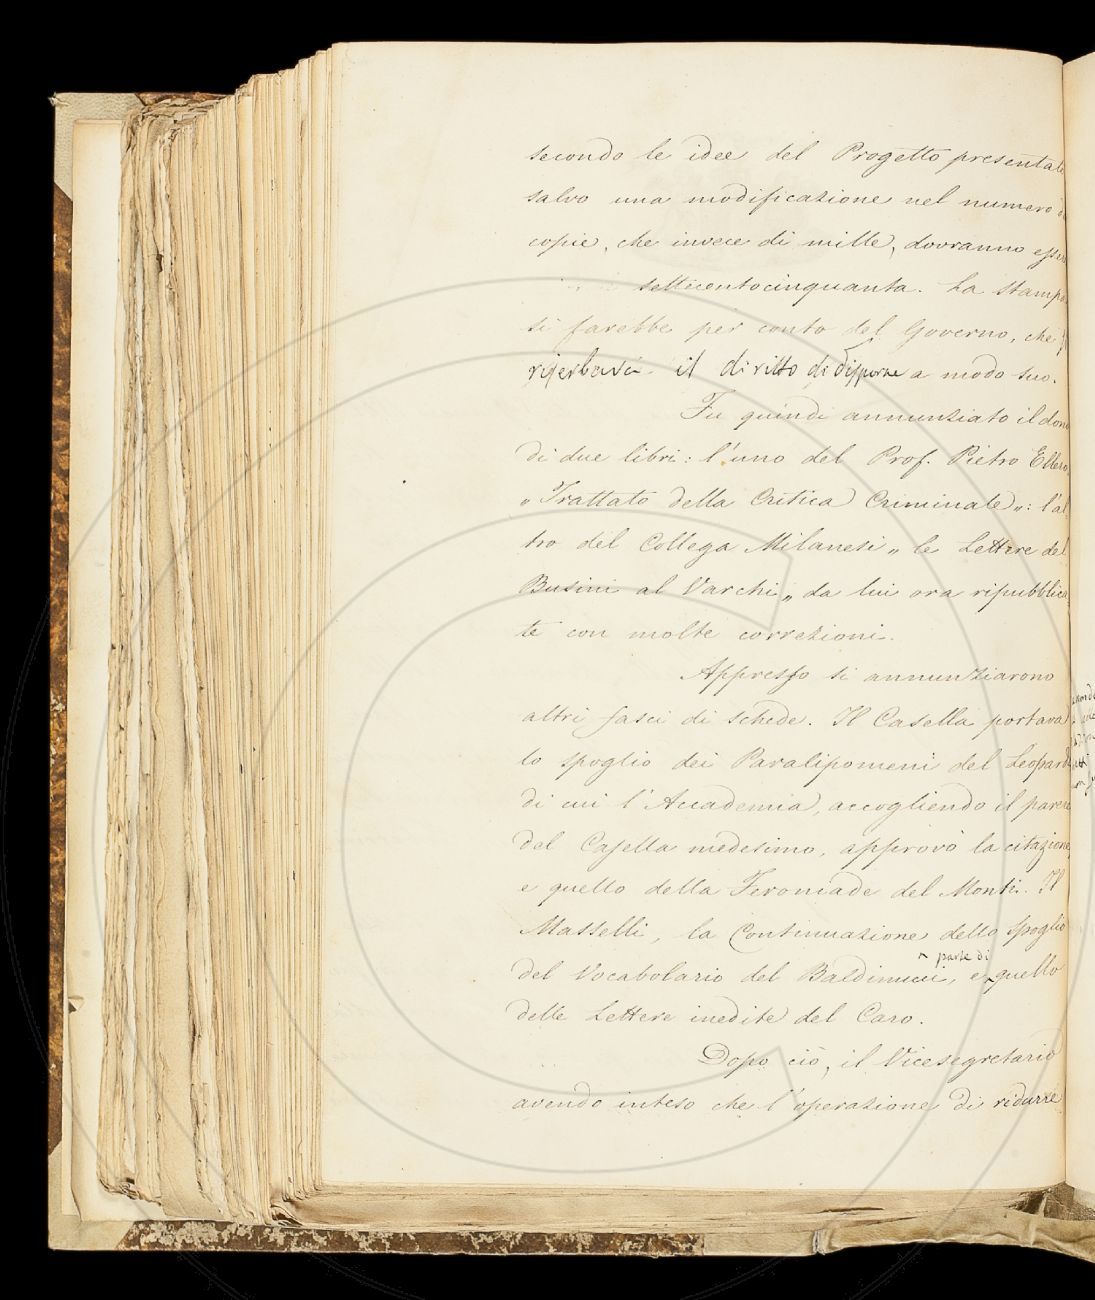 secondo le idee del Progetto presentato
salvo una modificazione nel numero di
copie, che invece di mille, dovranno essere
setticentocinquanta. La stampa
si farebbe per conto del Governo, che
riserbava il diritto di disporne a modo suo.
Fu quindi annunziato il dono
di due libri: l'uno del Prof. Pietro Ellero
„Trattato della Critica Criminale„: l'al
tro del Collega Milanesi „ le Lettere del
Busini al Varchi „ da lui ora ripubblica
te con molte correzioni.
Appresso si annunziarono
altri fasci di schede. Il Casella portava
lo spoglio dei Paralipomeni del Leopardi
di cui l'Accademia, accogliendo il parere
del Casella medesimo, approvò la citazione,
e quello della Feroniade del Monti. Il
Masselli, la Continuazione dello spoglio
del Vocabolario del Baldinucci, e parte di quello
delle Lettere inedite del Caro.
Dopo ciò, il Vicesegretario
avendo inteso che l'operazione di ridurre